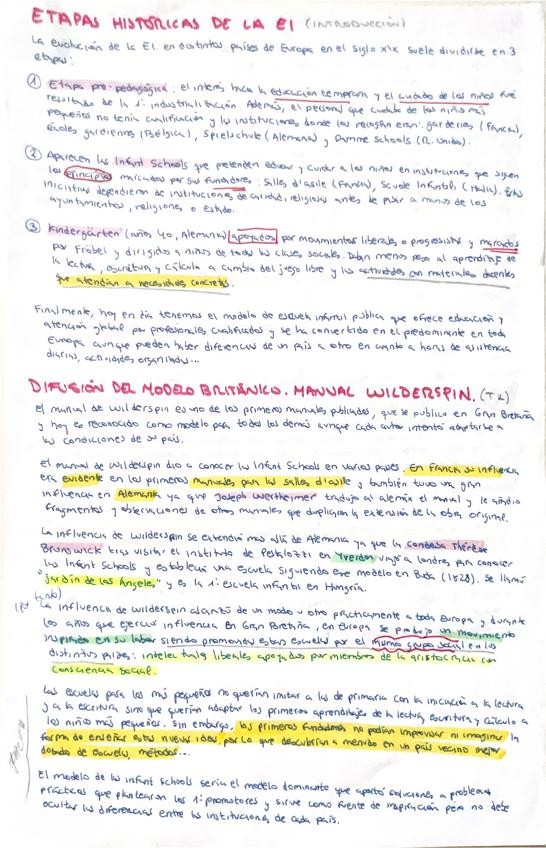 ETAPAS HISTÓRICAS DE LA EI (INTRODUCCIÓN)
La evolución de la EI en distintos países de Europa en el siglo XIX suele dividirse en 3
etapas:
① Etapa pre-pedagógica: el interés hacia la educación temprana y el cuidado de los niños fue
resultado de la 1ª industrialización. Además, el personal que cuidaba de los niños más
pequeños no tenía cualificación y las instituciones donde los recogían eran: garderies (Francia),
écoles gardiennes (Bélgica), Spielschule (Alemania) y Damme Schools (R. Unido).
② Aparecen las Infant Schools que pretenden educar y cuidar a los niños en instituciones que siguen
los principios marcados por sus fundadores: Salles d'asile (Francia), Scuole Infantili (Italia). Estas
iniciativas dependieron de instituciones de caridad, religiosas antes de pasar a manos de los
ayuntamientos, religiones o estado.
③ Kindergärten (años 40, Alemania) apoyados por movimientos liberales o progresistas y marcados
por Fröbel y dirigidos a niños de todas las clases sociales. Daban menos peso al aprendizaje de
la lectura, escritura y cálculo a cambio del juego libre y las actividades con materiales docentes
que atendían a necesidades concretas.
Finalmente, hoy en día tenemos el modelo de escuela infantil pública que ofrece educación y
atención global por profesionales cualificados y se ha convertido en el predominante en toda
Europa aunque pueden haber diferencias de un país a otro en cuanto a horas de asistencia
diarias, actividades organizadas...
DIFUSIÓN DEL MODELO BRITÁNICO. MANUAL WILDERSPIN. (T2)
El manual de Wilderspin es uno de los primeros manuales publicados, que se publicó en Gran Bretaña
y hoy es reconocido como modelo para todos los demás aunque cada autor intentó adaptarse a
las condiciones de su país.
El manual de Wilderspin dio a conocer las Infant Schools en varios países. En Francia su influencia
era evidente en los primeros manuales para las salles d'asile y también tuvo una gran
influencia en Alemania ya que Joseph Wertheimer tradujo al alemán el manual y le añadió
fragmentos y observaciones de otros manuales que duplicaron la extensión de la obra original.
La influencia de Wilderspin se extendió más allá de Alemania ya que la condesa Thérèse
Brunswick tras visitar el instituto de Pestalozzi en Yverdon viajó a Londres para conocer
las Infant Schools y estableció una escuela siguiendo ese modelo en Buda (1828). Se llamó
"Jardín de los Ángeles" y es la 1ª escuela infantil en Hungría.
(por tanto)
La influencia de Wilderspin alcanzó de un modo u otro prácticamente a toda Europa y durante
los años que ejerció influencia en Gran Bretaña, en Europa se produjo un movimiento
inspirado en su labor siendo promovidas estas escuelas por el mismo grupo social en los
distintos países: intelectuales liberales apoyados por miembros de la aristocracia con
consciencia social.
Las escuelas para los más pequeños no querían imitar a las de primaria con la iniciación a la lectura
y a la escritura sino que querían adaptar los primeros aprendizajes de la lectura, escritura y cálculo a
los niños más pequeños. Sin embargo, los primeros fundadores no podían improvisar ni imaginar la
forma de enseñar estas nuevas ideas, por lo que descubrían a menudo en un país vecino mejor
dotado de escuelas, métodos...
El modelo de las Infant Schools sería el modelo dominante que aportó soluciones a problemas
prácticos que plantearon los 1º promotores y sirve como fuente de inspiración pero no debe
ocultar las diferencias entre las instituciones de cada país.